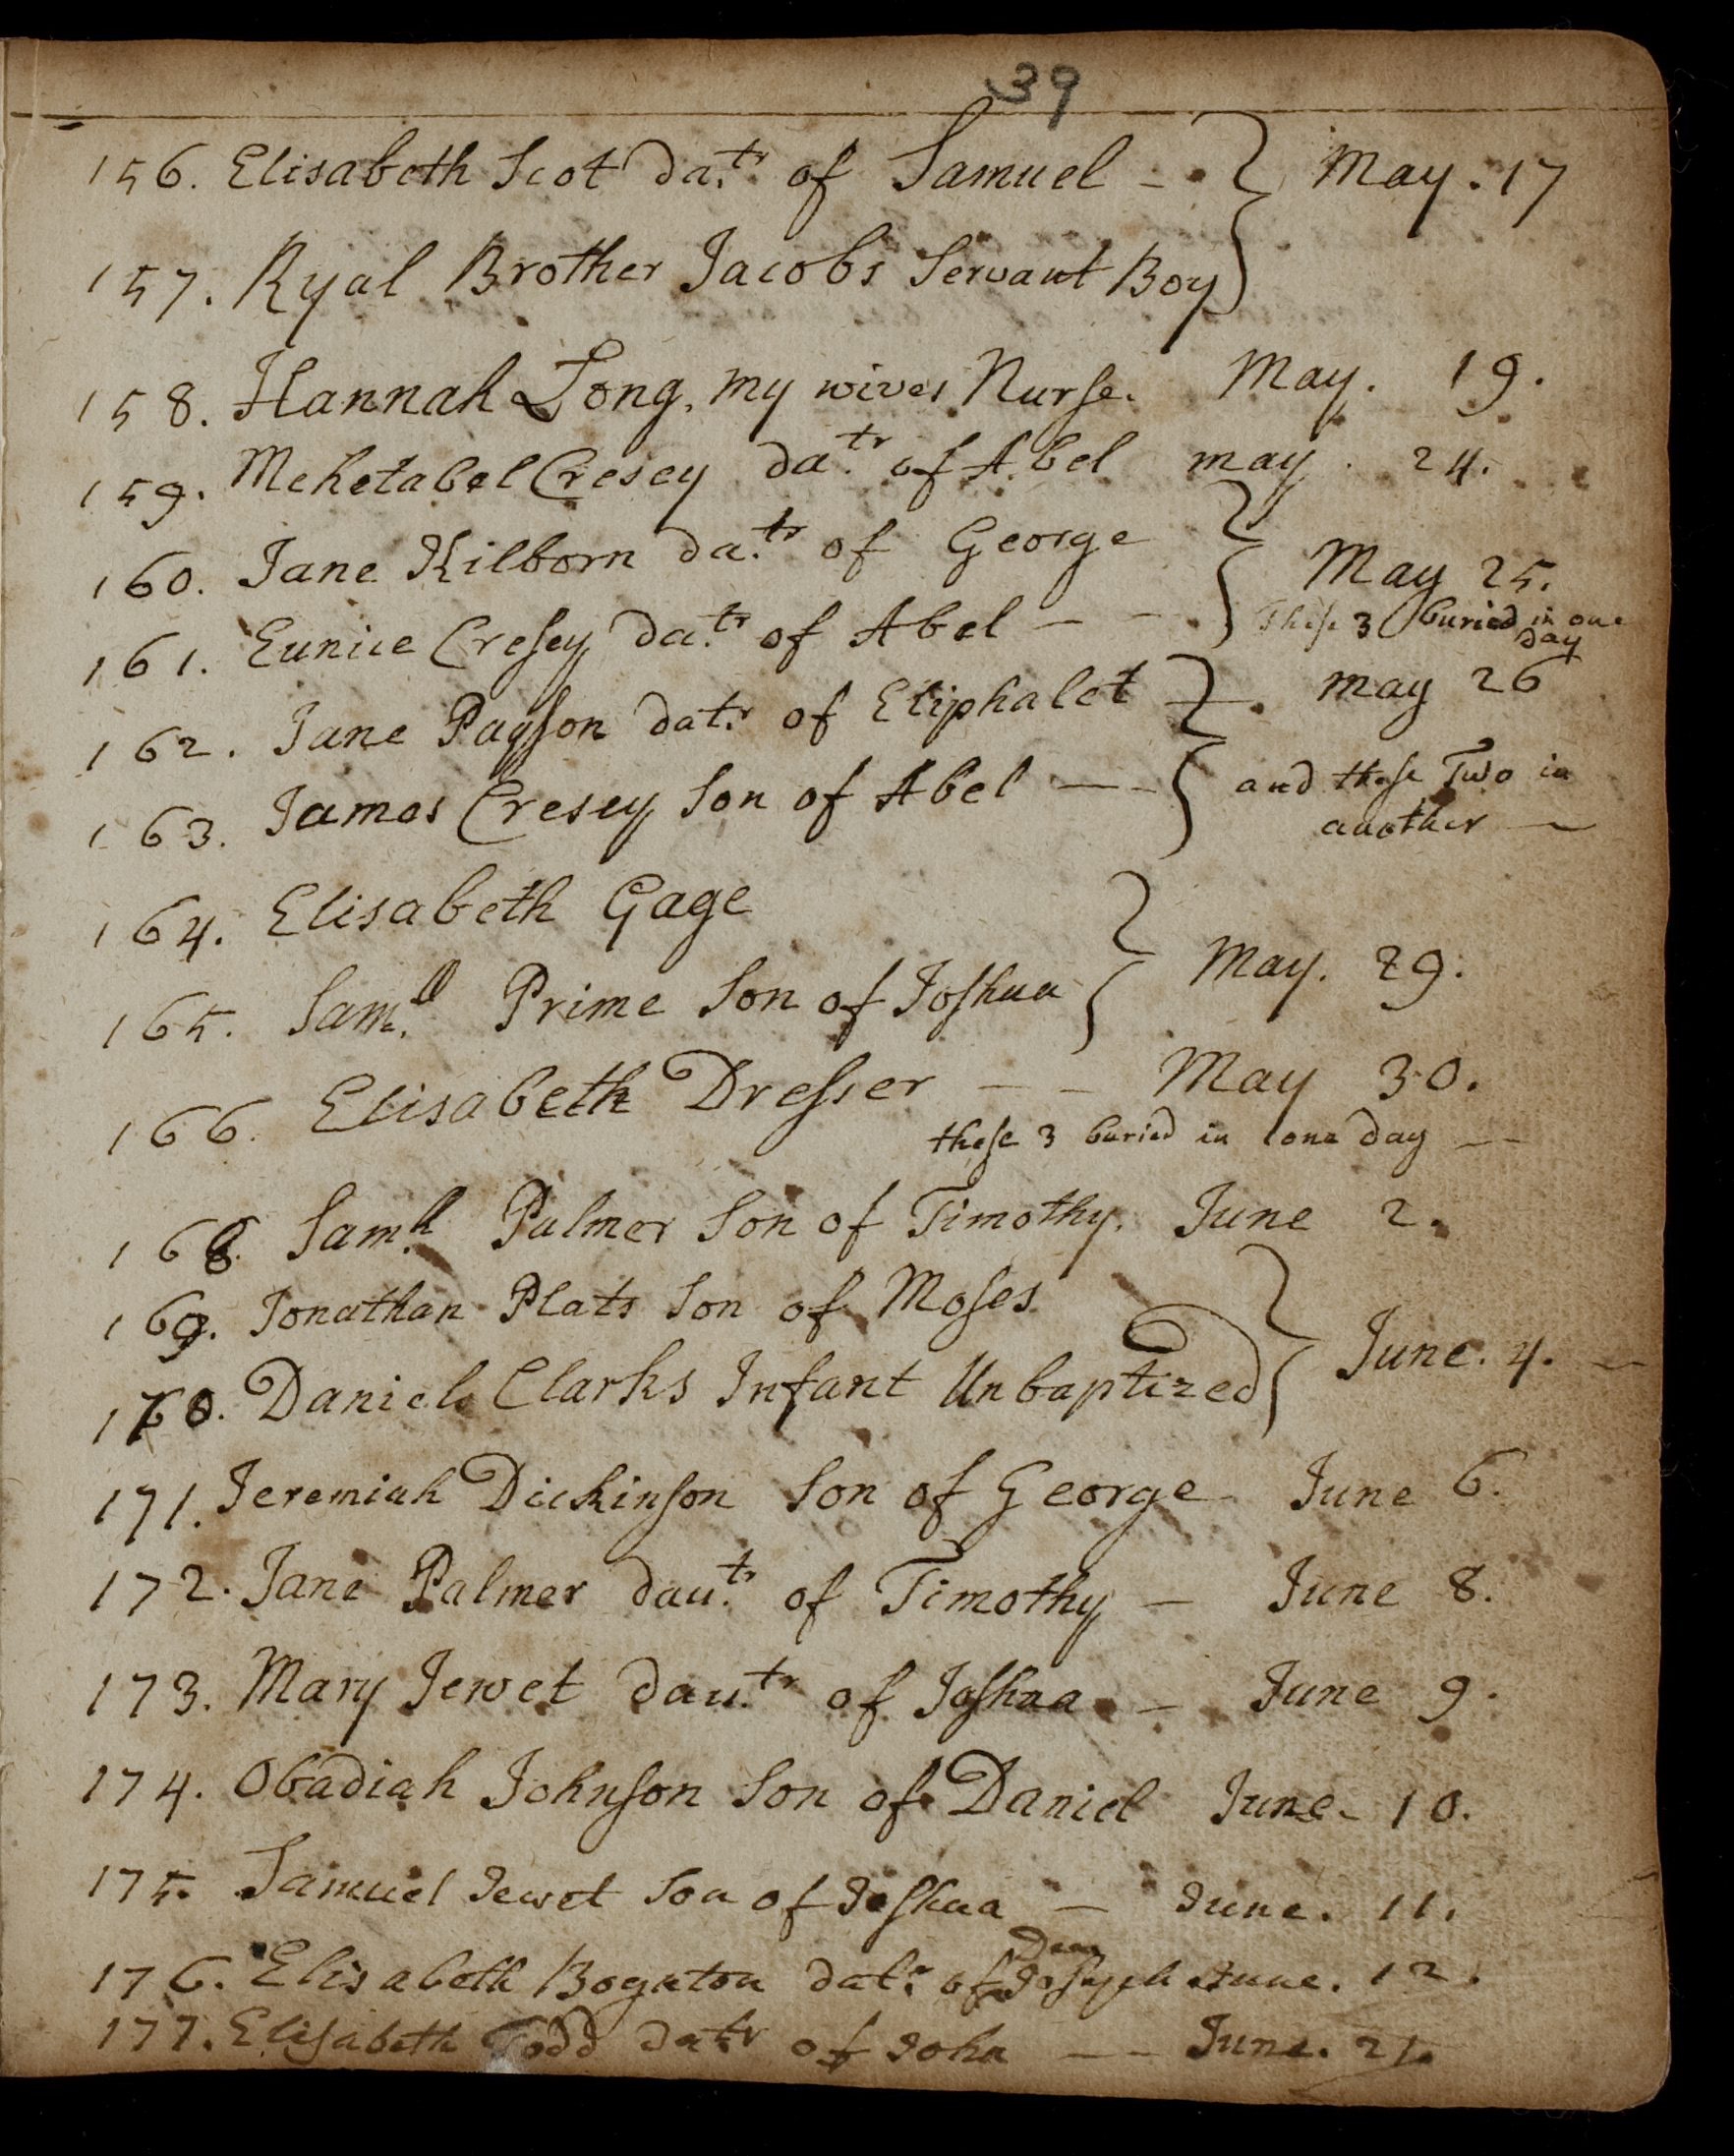 39
156. Elisabeth Scot da.tr of Samuel - . } May . 17
157. Ryal Brother Jacobs Servant Boy
158. Hannah Long, my wives Nurse. May. 19.
159. Mehetabel Cresey da.tr of Abel may . 24.
160. Jane Kilborn da.tr of George } May 25.
161. Eunice Cresey da.tr of Abel - - . These 3 buried in one
day
162. Jane Payson dat.r of Eliphalet } . may 26
163. James Cresey Son of Abel — - } and these Two in
another —
164. Elisabeth Gage
165. Sam.ll Prime Son of Joshua } May. 29.
166. Elisabeth Dresser - - May 30.
these 3 buried in one day —
168. Sam.ll Palmer Son of Timothy. June 2.
169. Jonathan Plats Son of Moses
170. Daniel Clarks Infant Unbaptized } June. 4. —
171. Jeremiah Dickinson Son of George June 6.
172. Jane Palmer dau.tr of Timothy - June 8.
173. Mary Jewet dau.tr of Joshua - June 9.
174. Obadiah Johnson Son of Daniel June - 10.
175. Samuel Jewet Son of Joshua — June. 11.
176. Elisabeth Boynton dat.r of Deac Joseph June. 12.
177. Elisabeth Todd datr of John — - June. 21.